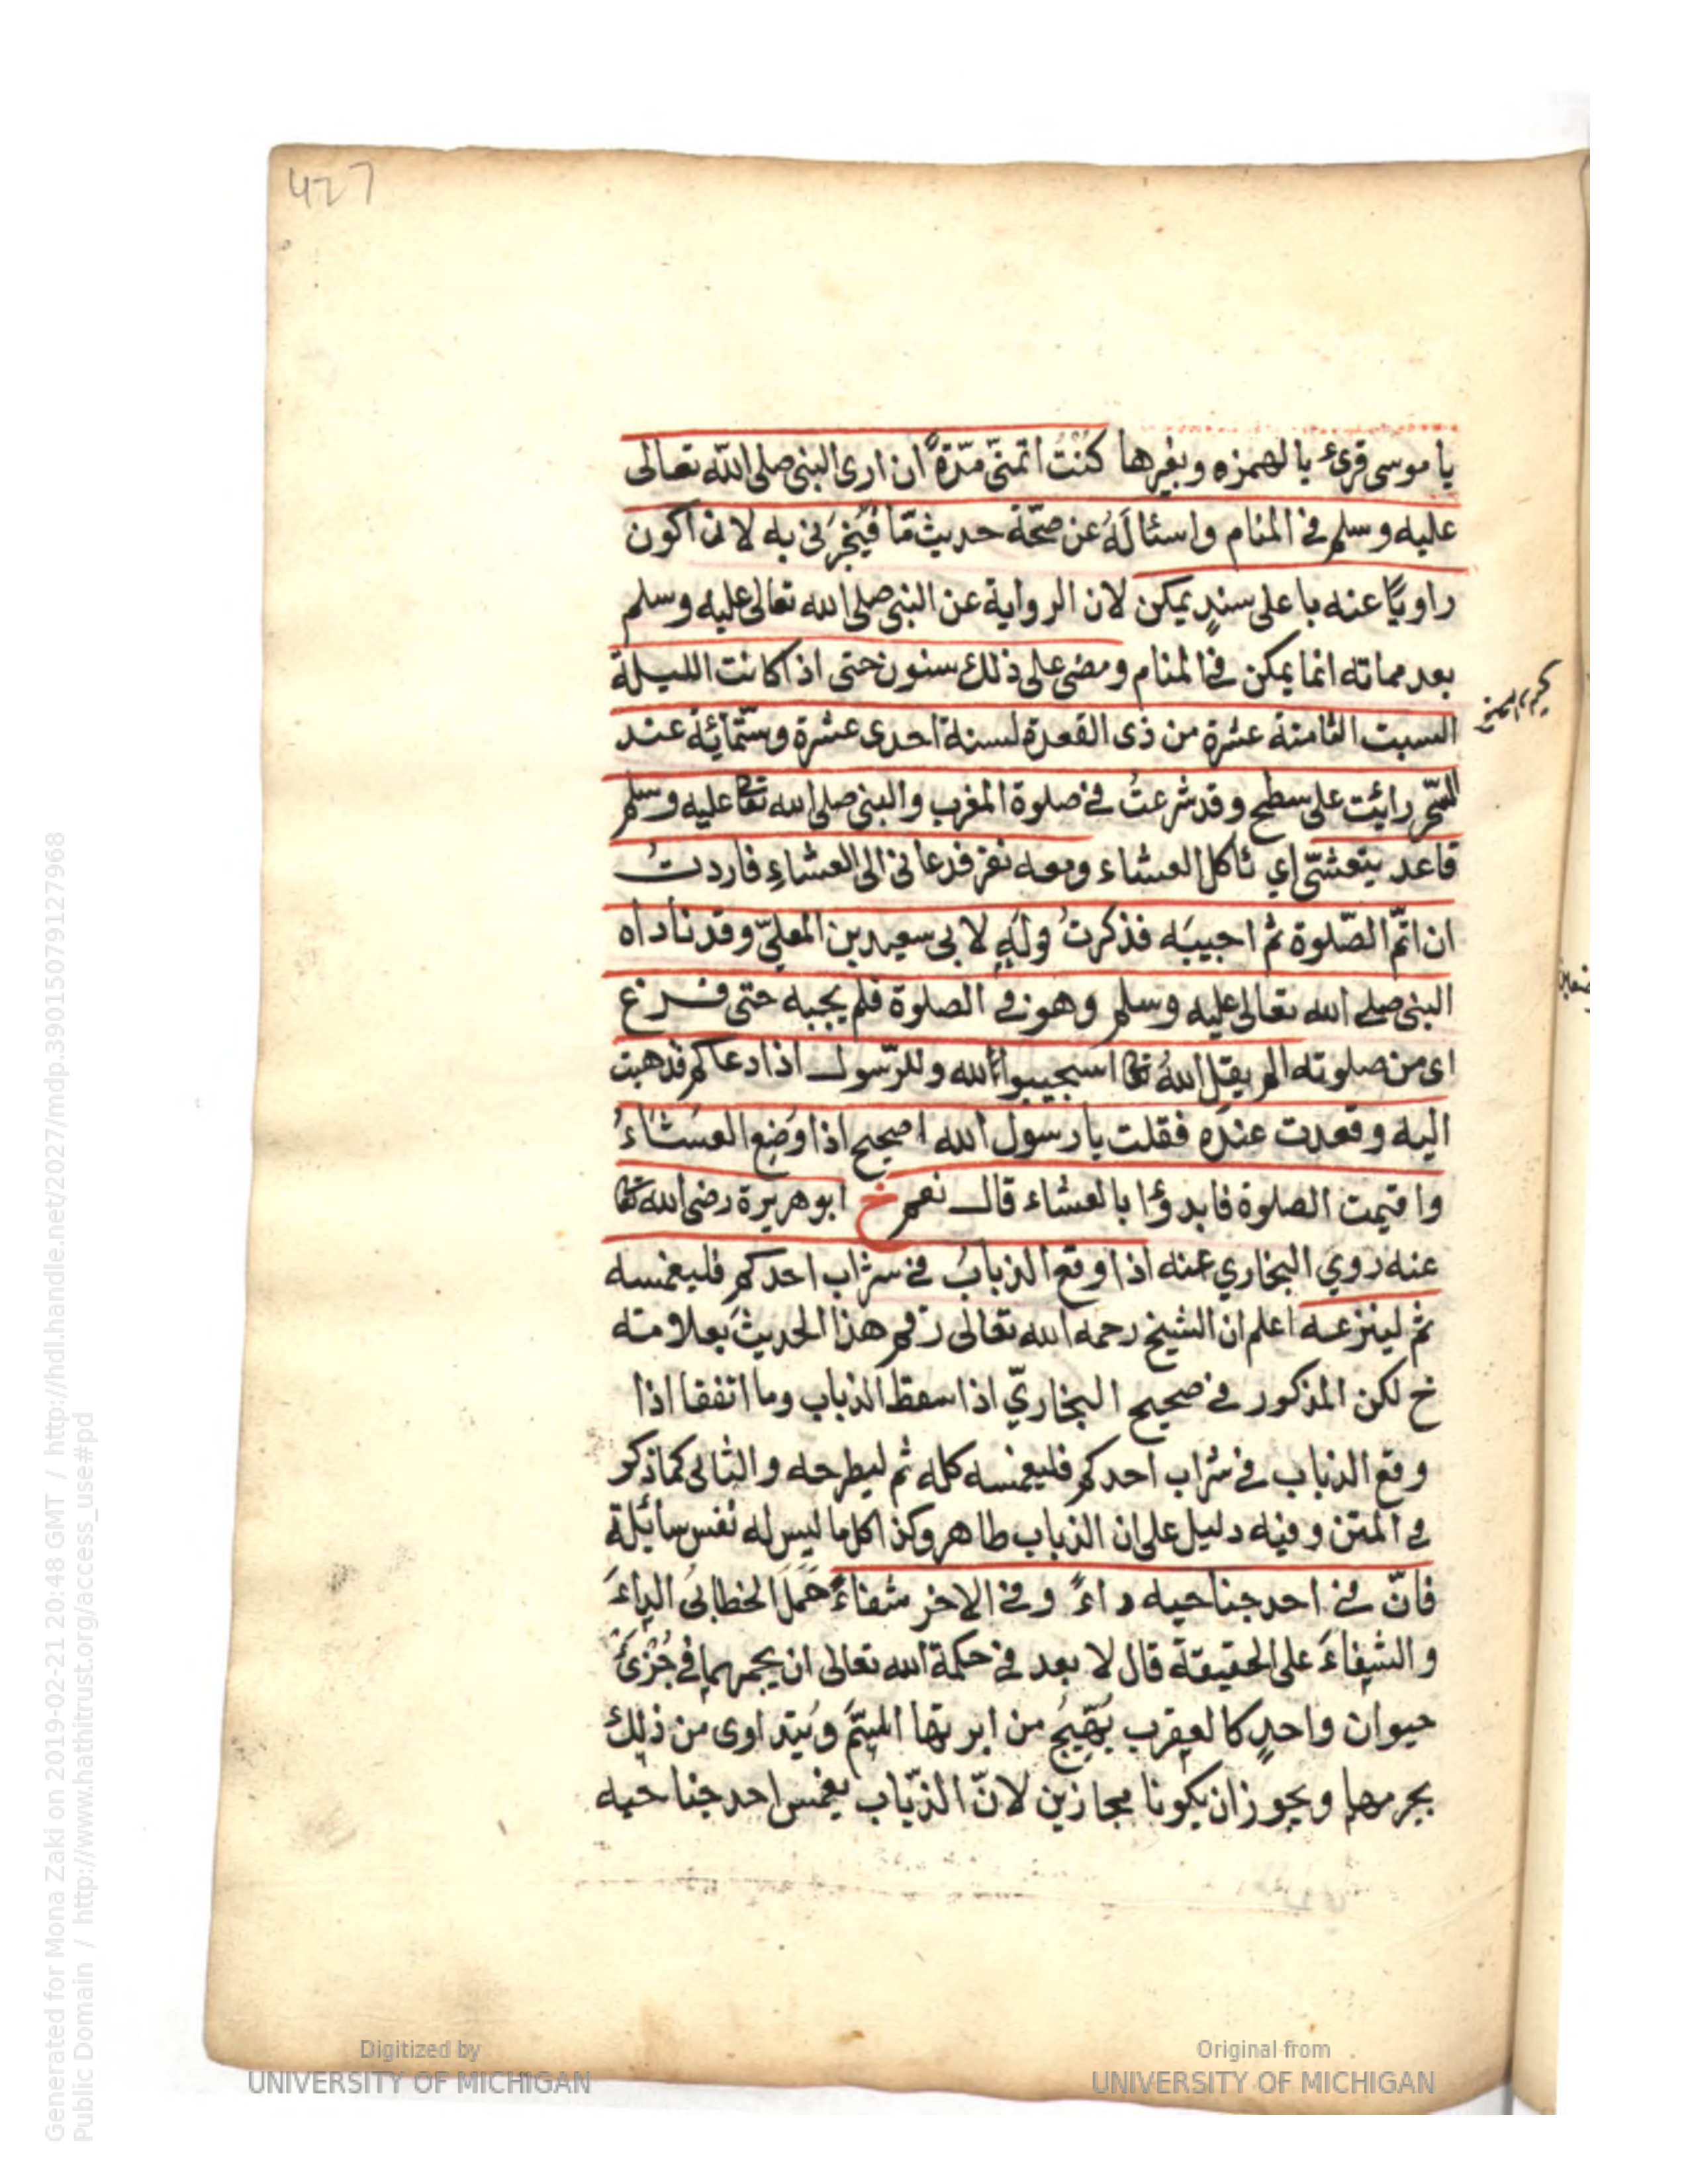 427
يا موسى قرئ بالهمزه وبغيرها كُنْتُ اتمنّى مدّةً ان ارى النبى صلى الله تعالى
عليه وسلم فى المنام واسئالَهُ عن صحّة حديث مّا فَيُخبِرَنى به لانْ اكون
راويًا عنه باعلى سندٍ يمكن لان الرواية عن النبى صلى الله تعالى عليه وسلم
بعد مماته انما يمكن فى المنام ومضى على ذلك سنون حتى اذا كانت الليلة
السبت الثامنة عشرة من ذى القعدة لسنة احدى عشرة وستّمائة عند
السّحر رايت على سطح وقد شرعتُ فى صلوة المغرب والنبى صلى الله تعا عليه وسلم
قاعد يتعشّى اي ئاكل العشاء ومعه نفر فدعانى الى العشاءِ فاردتُ
ان اتمّ الصّلوة ثم اجيبَه فذكرتُ قولَه لابى سعيد بن المعلّى وقد ناداه
النبى صلى الله تعالى عليه وسلم وهو فى الصلوة فلم يجبه حتى فرغ
اى من صلوته الم يقل اللهُ تعا اسجيبوا لله وللرّسول اذا دعاكم فذهبت
اليه وقعدت عنده فقلت يا رسول الله اصحيح اذا وُضِع العَشَاءُ
واقيمت الصلوة فابدؤا بالعشاء قال نعم خ ابو هريرة رضى الله تعا
عنه روي البخاري عنه اذا وقع الذبابُ فى شراب احدكم فليغمسه
ثم لينزعه اعلم ان الشيخ رحمه الله تعالى رقم هذا الحديث بعلامته
خ لكن المذكور فى صحيح البخاريّ اذا سقط الذباب وما اتفقا اذا
وقع الذباب فى شراب احدكم فليغمسه كله ثم ليطرحه والتالى كما ذكر
فى المتن وفيه دليل على ان الذباب طاهر وكذا كل ما ليس له نفس سائلة
فانّ فى احد جناحيه داءً وفى الاخر شفاءً حَمَلَ الخطابى الداءَ
والشِفاءَ على الحقيقة قال لا بعد فى حكمة الله تعالى ان يجمعهما فى جُزْئَ
حيوان واحدٍ كالعقرب يُهَيِّجُ من ابرتها السّمَّ ويُتداوى من ذلك
بجرمها ويجوز ان يكونا مجازين لانّ الذّباب يغمس احد جناحيه
Digitized by
UNIVERSITY OF MICHIGAN
Original from
UNIVERSITY OF MICHIGAN
Generated for Mona Zaki on 2019-02-21 20:48 GMT / http://hdl.handle.net/2027/mdp.39015079127968
Public Domain / http://www.hathitrust.org/access_use#pd